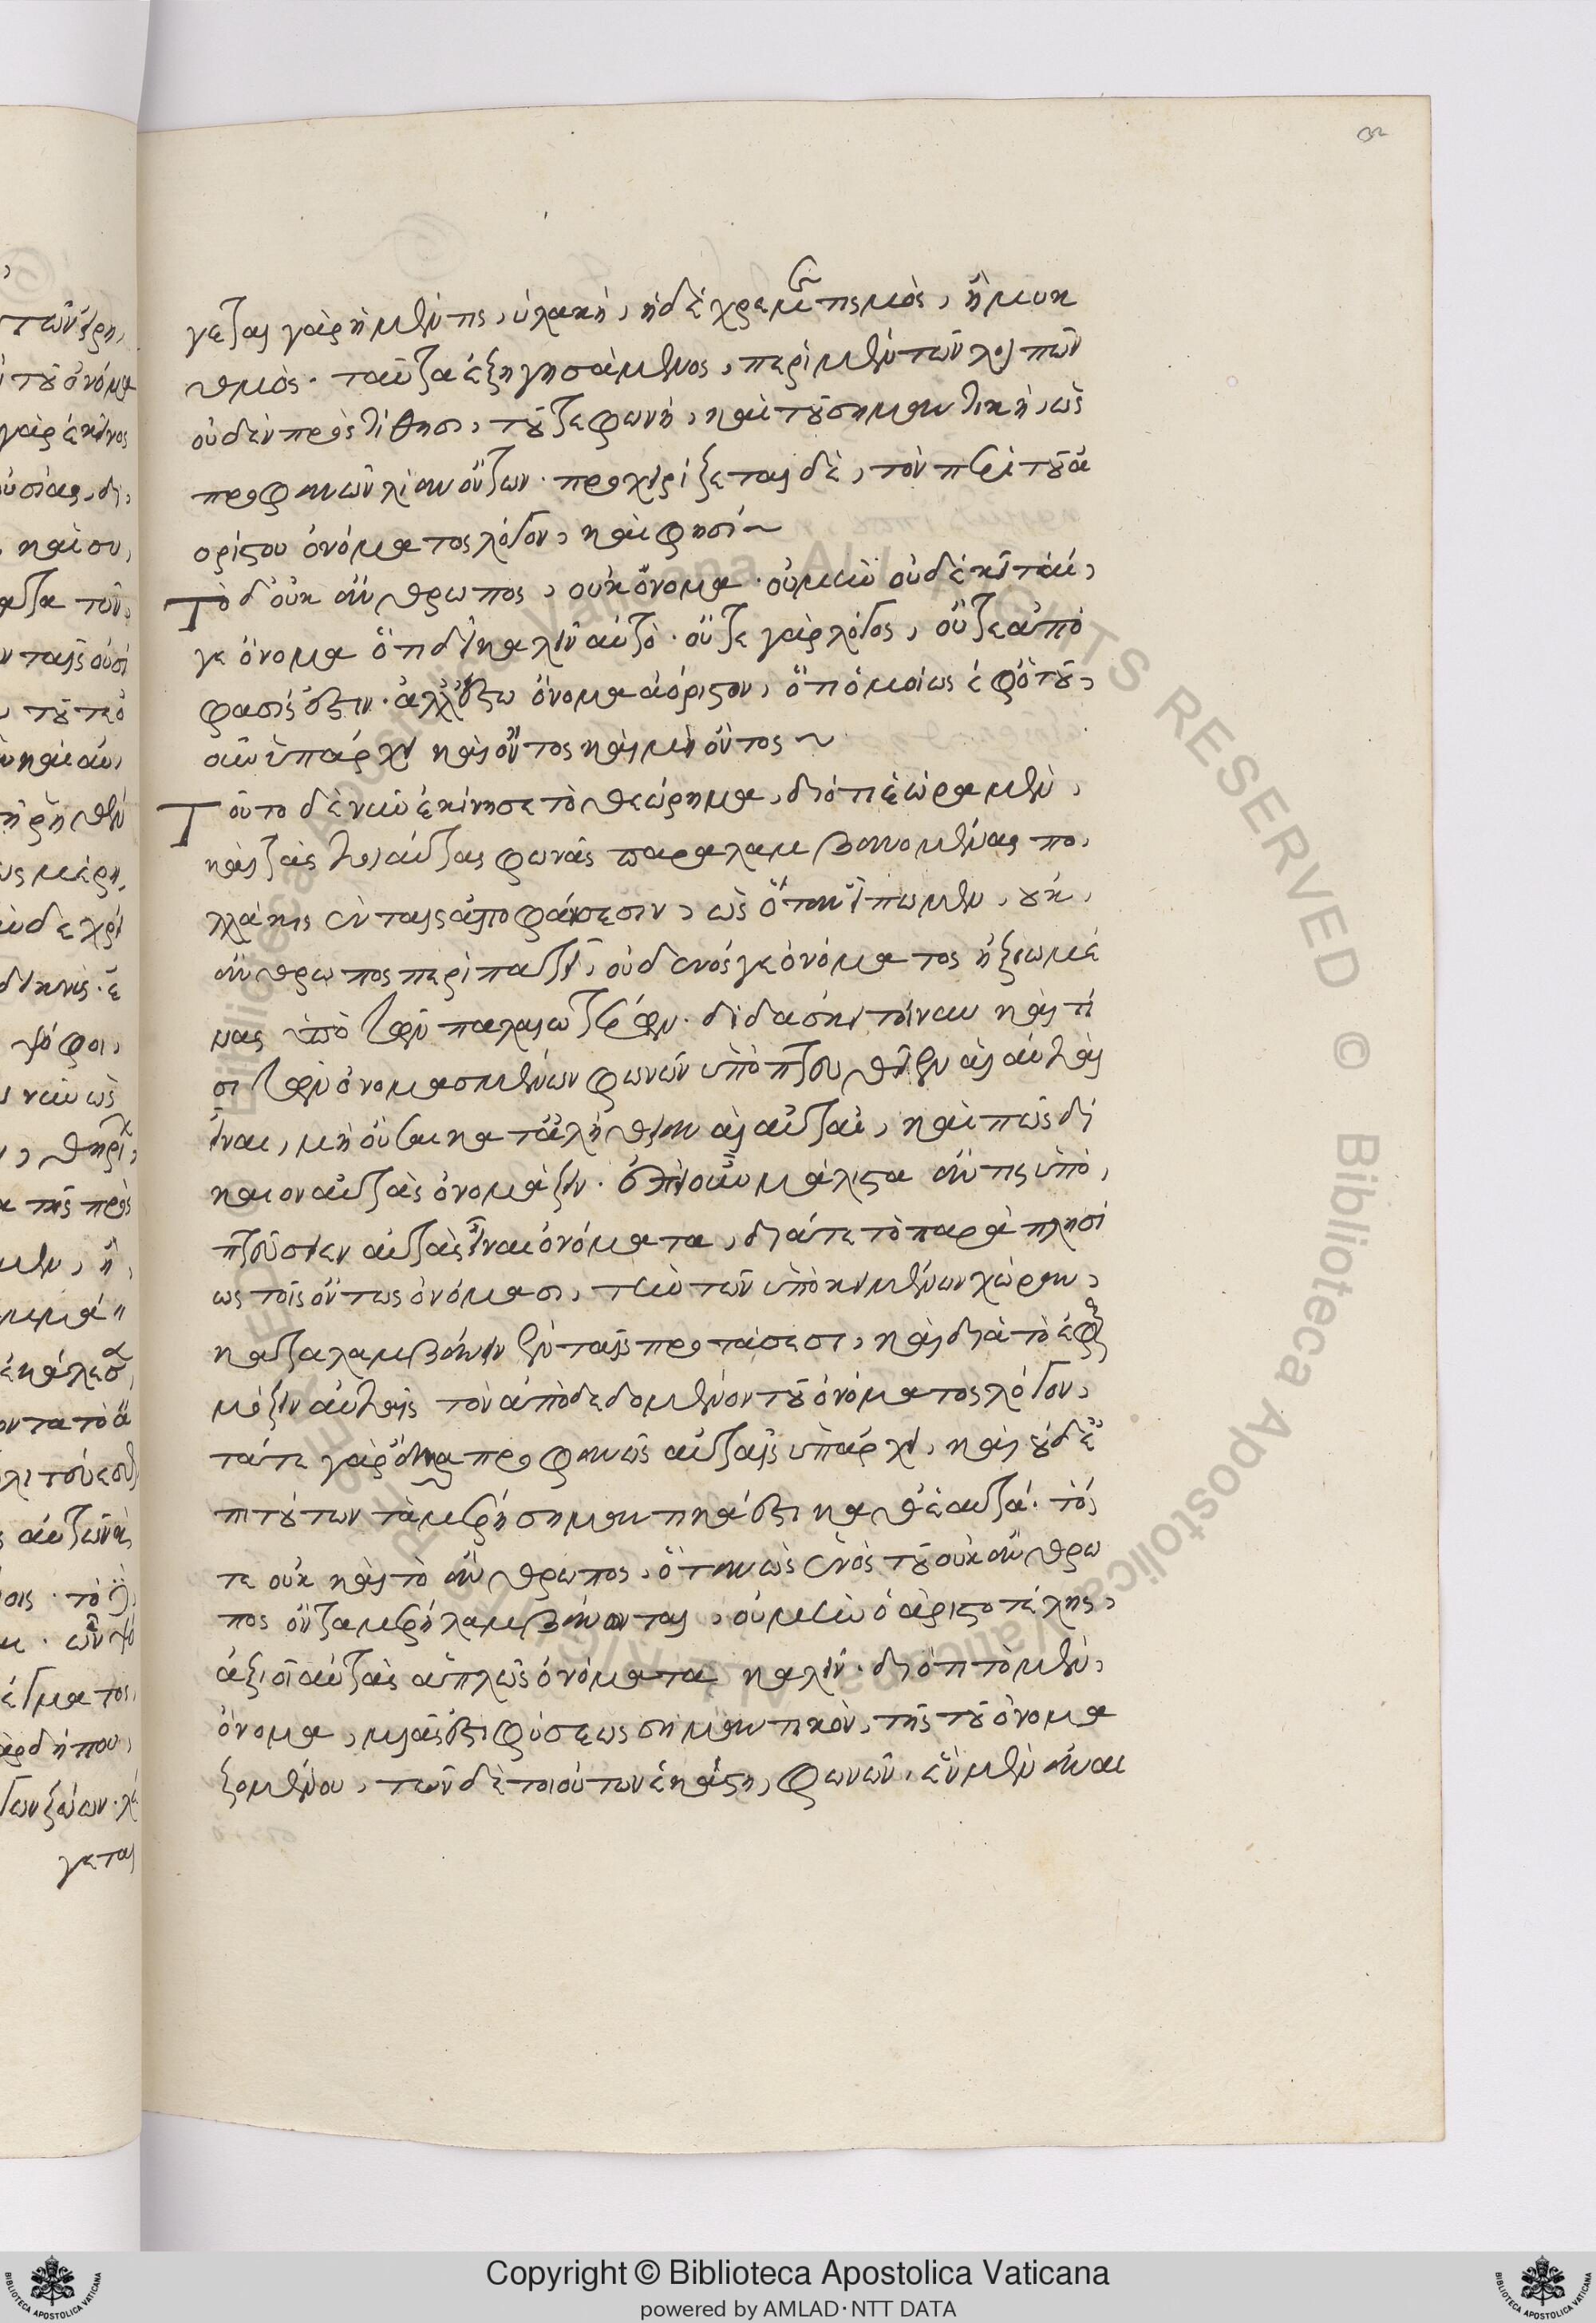 γεται γὰρ ἡ μέν τις, ὑλακή, ἡ δὲ χρεμετισμὸς, ἢ μυκη
θμός. ταῦτα ἐξηγησάμενος, περὶ μὲν τῶν λοιπῶν
οὐδὲν προστίθησι, τοῦτε φωνὴ, καὶ τοῦ σημαντικὴ, ὡς
προφανῶν λίαν ὄντων. προχειρίζεται δὲ, τὸν περὶ τοῦ ἀ
ορίστου ὀνόματος λόγον, καὶ φησί~
Τὸ δ' οὐκ ἄνθρωπος, οὐκ ὄνομα. οὐ μὴν οὐδὲ κεῖται,
γε ὄνομα ὅτι δεῖ καλεῖν αὐτό. οὔτε γὰρ λόγος, οὔτε ἀπό
φασίς ἐστιν. ἀλλ' ἔστω ὄνομα ἀόριστον, ὅτι ὁμοίως ἐφ' ὁτου,
οὖν ὑπάρχει καὶ ὄντος καὶ μὴ ὄντος~
Τοῦτο δὲ νῦν ἐκίνησε τὸ θεώρημα, διότι ἑώρα μὲν,
καὶ τὰς τοιαύτας φωνὰς παραλαμβανομένας πο,
λλάκις ἐν ταῖς ἀποφάνσεσιν, ὡς ὅταν εἴπωμεν, οὐκ,
ἄνθρωπος περιπατεῖ, οὐδενός γε ὀνόματος ἠξιωμέ
νας ὑπὸ τῶν παλαιωτέρων. διδάσκει τοίνυν καὶ τί
σι τῶν ὀνομασμένων φωνῶν ὑποπτευθεῖεν αἱ αὐταὶ
εἶναι, μὴ οὖσαι κατ' ἀλήθειαν αἱ αὐταί, καὶ πῶς δεῖ
καιον αὐτὰς ὀνομάζειν. ἐπεὶ οὖν μάλιστα ἄν τις ὑπό,
πτευσειεν αὐτὰς εἶναι ὀνόματα, διά τε τὸ παραπλησί
ως τοῖς ὄντως ὀνόμασι, τὴν τῶν ὑποκειμένων χώραν,
καταλαμβάνειν ἐν ταῖς προτάσεσι, καὶ διὰ τὸ ἐφαρ
μόζειν αὐταῖς τὸν ἀποδεδομένον τοῦ ὀνόματος λόγον,
τάτε γὰρ ἄλλα προφανῶς αὐταῖς ὑπάρχει, καὶ οὐδὲ ἔ
τι τούτων τὰ μέρη σημαντικά ἐστι καθ' ἑαυτά. τό,
τε οὐκ καὶ τὸ ἄνθρωπος, ὅταν ὡς ἑνὸς τοῦ οὐκ ἄνθρω
πος ὄντα μέρη λαμβάνονται, οὐ μὴν ὁ ἀριστοτέλης,
ἀξιοῖ αὐτὰς ἁπλῶς ὀνόματα καλεῖν. διότι τὸ μὲν,
ὄνομα, μιᾶς ἐστι φύσεως σημαντικὸν, τῆς τοῦ ὀνομα
ζομένου, τῶν δὲ τοιούτων ἑκάστη, φωνῶν, ἓν μὲν ἀναι